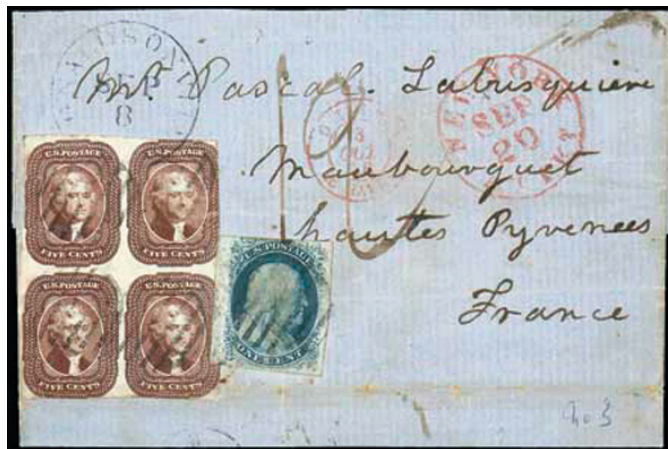 SEP
8
Mr. Pascal Labusquiere
NEW YORK
SEP
20
Maubourguet
hautes Pyrenees
France
U.S. POSTAGE
FIVE CENTS
U.S. POSTAGE
FIVE CENTS
U.S. POSTAGE
FIVE CENTS
U.S. POSTAGE
FIVE CENTS
U.S. POSTAGE
ONE CENT